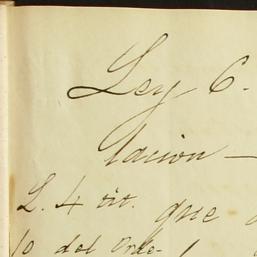 Ley 6.
lacion —
L. 4 tit. que
10 del Orde-